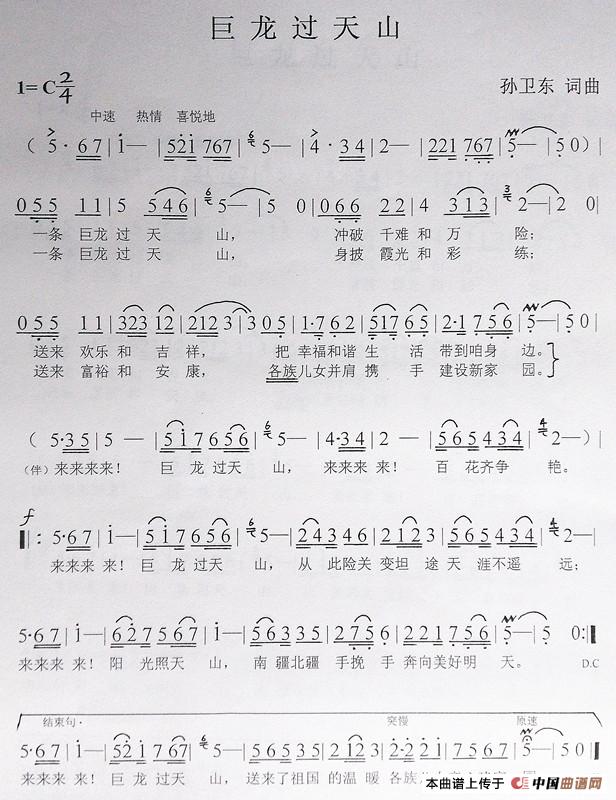 巨龙过天山
1= C 2/4
孙卫东 词曲
中速 热情 喜悦地
( 5· 67 | i— | 52i 767 | 5— | 4· 34 | 2— | 221 767 | 5— | 5 0 ) |
0 5 5 1 1 | 5 5 4 6 | 5— | 5 0 | 0 6 6 2 2 | 4 3 1 3 | 2— | 2 0 |
一条 巨龙 过 天 山, 冲破 千难 和 万 险;
一条 巨龙 过 天 山, 身披 霞光 和 彩 练;
0 5 5 1 1 | 323 12 | 2123 | 3 0 5 | 1·7 6 2 | 5 1 7 6 5 | 2·1 7 5 6 | 5— | 5 0 |
送来 欢乐 和 吉 祥, 把 幸福和谐 生 活 带到咱身 边。
送来 富裕 和 安 康, 各族儿女并肩 携 手 建设新家 园。
( 5·35 | 5 — | 5i7 656 | 5— | 4·34 | 2 — | 565 434 | 2—) |
(伴) 来来来来! 巨龙 过天 山, 来来来 来! 百 花齐争 艳。
f
‖: 5·67 | i— | 5i7 656 | 5— | 24346 | 24346 | 565434 | 2— |
来来来 来! 巨龙 过天 山, 从 此险关 变坦 途 天 涯不遥 远;
5·67 | i— | 627 567 | 5— | 56335 | 2756 | 2·1756 | 5— | 5 0 :‖
来来来 来! 阳 光照天 山, 南 疆北疆 手挽 手 奔向美好明 天。 D.C
结束句· 突慢 原速
来来来 来! 巨 龙 过天 山, 送来了祖国 的温 暖 各族
本曲谱上传于 中国曲谱网